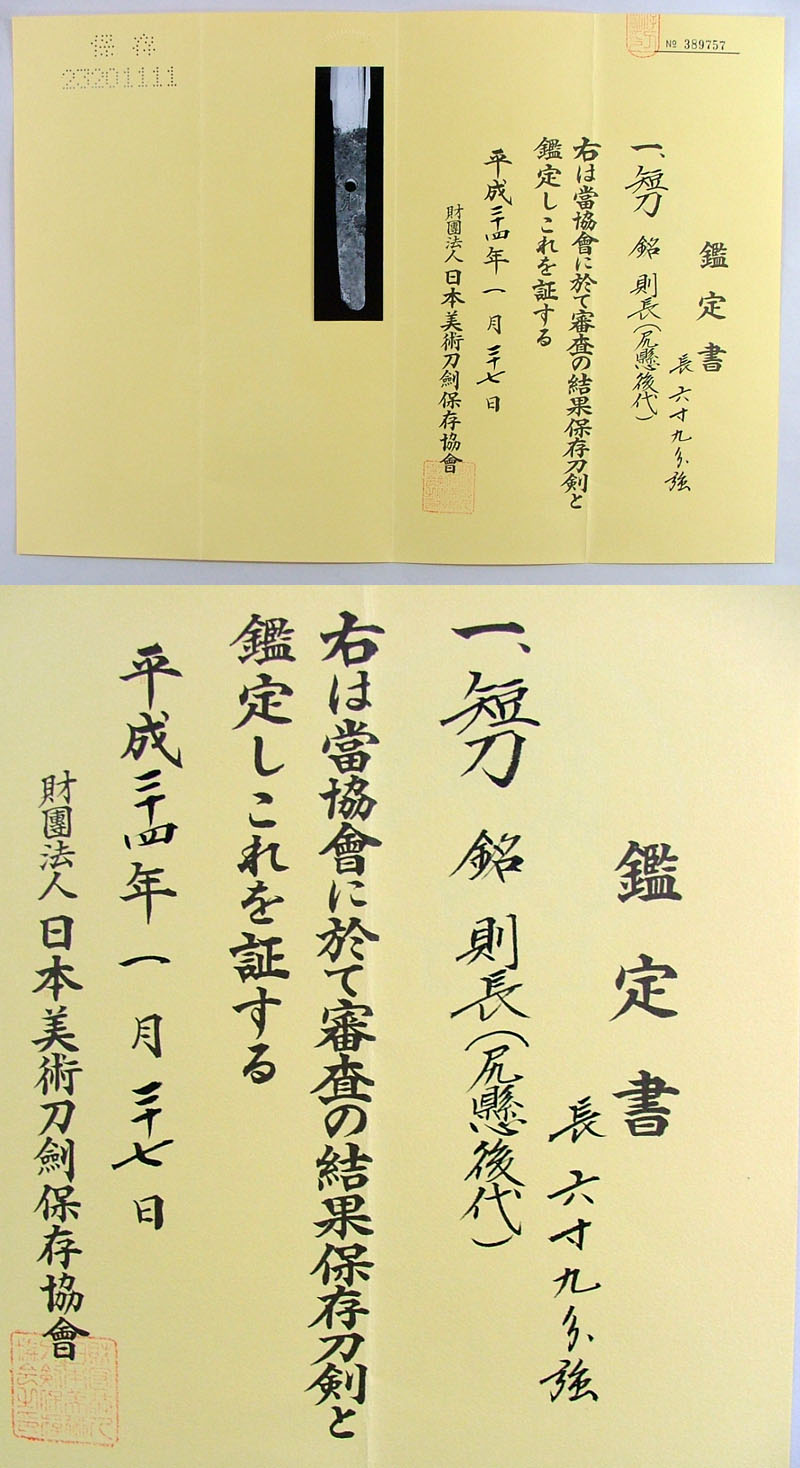 保存
23201111
№ 389757
鑑定書
長六寸九分強
一、短刀 銘 則長（尻懸後代）
右は當協會に於て審査の結果保存刀剣と
鑑定しこれを証する
平成二十四年一月二十七日
財團法人日本美術刀劍保存協會
鑑定書
長六寸九分強
一、短刀 銘 則長（尻懸後代）
右は當協會に於て審査の結果保存刀剣と
鑑定しこれを証する
平成二十四年一月二十七日
財團法人日本美術刀劍保存協會